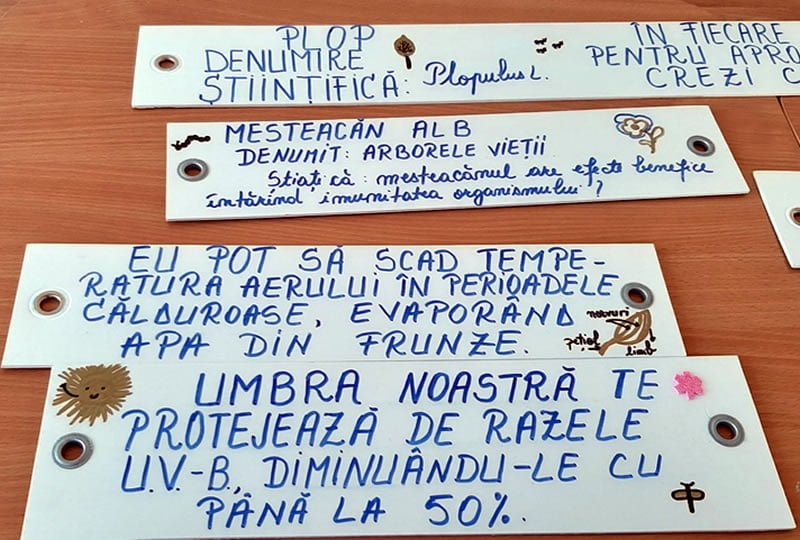 PLOP
DENUMIRE
ȘTIINȚIFICĂ: Plopulus L.
ÎN FIECARE
PENTRU APRO
CREZI C
MESTEACĂN ALB
DENUMIT: ARBORELE VIEȚII
Știați că: mesteacămul are efecte benefice
întărind imunitatea organismului?
EU POT SĂ SCAD TEMPE-
RATURA AERULUI ÎN PERIOADELE
CĂLDUROASE, EVAPORÂND
APA DIN FRUNZE.
nervuri
pețiol
limb
UMBRA NOASTRĂ TE
PROTEJEAZĂ DE RAZELE
U.V.-B, DIMINUÂNDU-LE CU
PÂNĂ LA 50%.